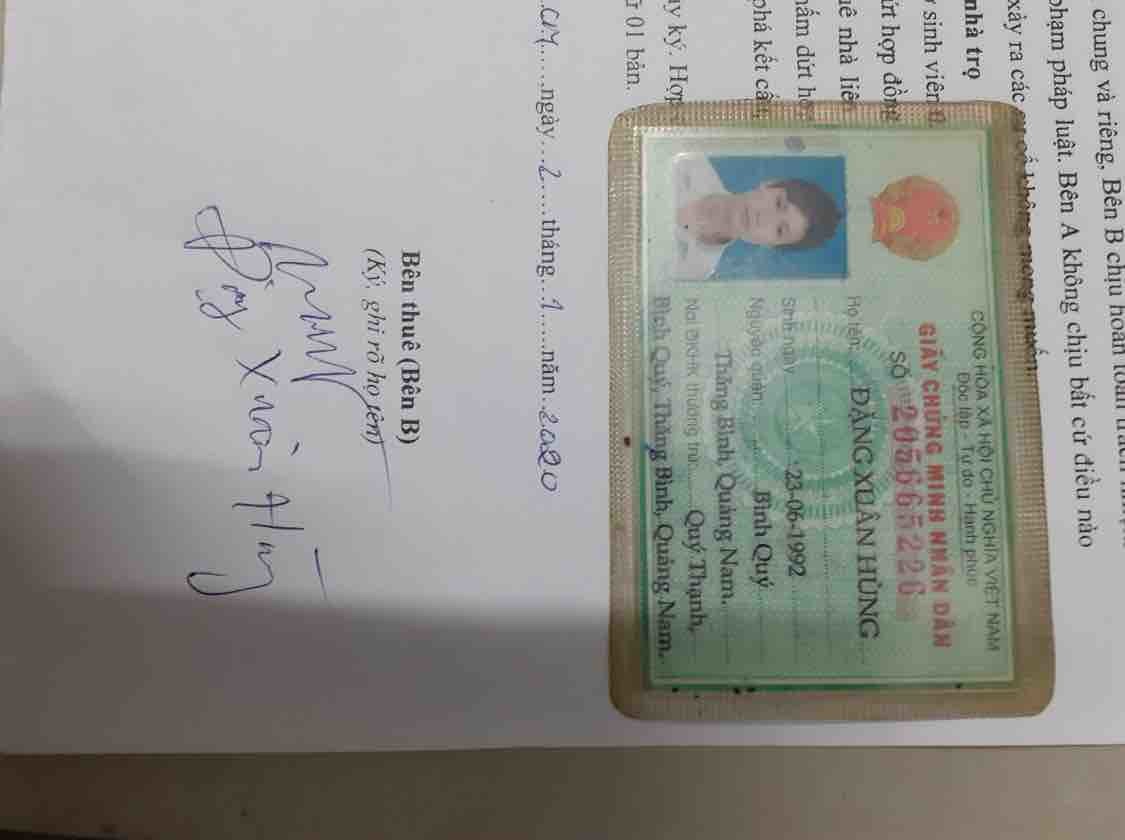 chung và riêng, Bên B chịu hoàn toàn
phạm pháp luật. Bên A không chịu bất cứ điều nào
xảy ra các sự cố không mong muốn.
nhà trọ
sinh viên
hợp đồng
nhà
dứt
phá kết
ký.
01 bản.
CỘNG HÒA XÃ HỘI CHỦ NGHĨA VIỆT NAM
Độc lập - Tự do - Hạnh phúc
GIẤY CHỨNG MINH NHÂN DÂN
SỐ 205665226
Họ tên: ĐẶNG XUÂN HÙNG
Sinh ngày 23-06-1992
Nguyên quán: Bình Quý
Thăng Bình, Quảng Nam.
Nơi ĐKHK thường trú: Quý Thạnh,
Bình Quý, Thăng Bình, Quảng Nam.
ngày...2.....tháng...1.....năm.2020
Bên thuê (Bên B)
(Ký, ghi rõ họ tên)
Đặng Xuân Hùng